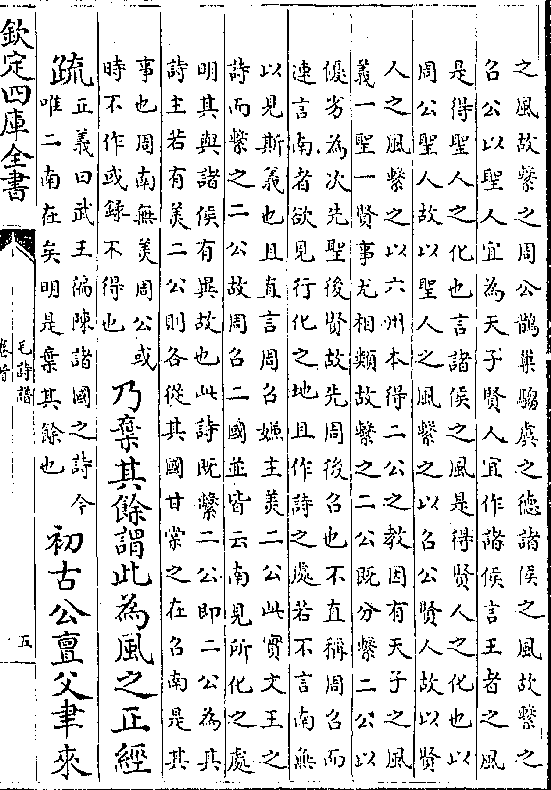 之風故繫之周公鵲巢騶虞之徳諸侯之風故繫之
召公以聖人宜為天子賢人宜作諸侯言王者之風
是得聖人之化也言諸侯之風是得賢人之化也以
周公聖人故以聖人之風繫之以召公賢人故以賢
人之風繫之以六州本得二公之教因有天子之風
義一聖一賢事尤相類故繫之二公既分繫二公以
優劣為次先聖後賢故先周後召也不直稱周召而
連言南者欲見行化之地且作詩之處若不言南無
以見斯義也且直言周召嫌主美二公此實文王之
詩而繫之二公故周召二國並皆云南見所化之處
明其與諸侯有異故也此詩既繫二公即二公為其
詩主若有美二公則各從其國甘棠之在召南是其
事也周南無美周公或
時不作或録不得也
乃棄其餘謂此為風之正經
疏
正義曰武王徧陳諸國之詩今
唯二南在矣明是棄其餘也
初古公亶父聿來
欽定四庫全書
毛詩譜
卷首
五